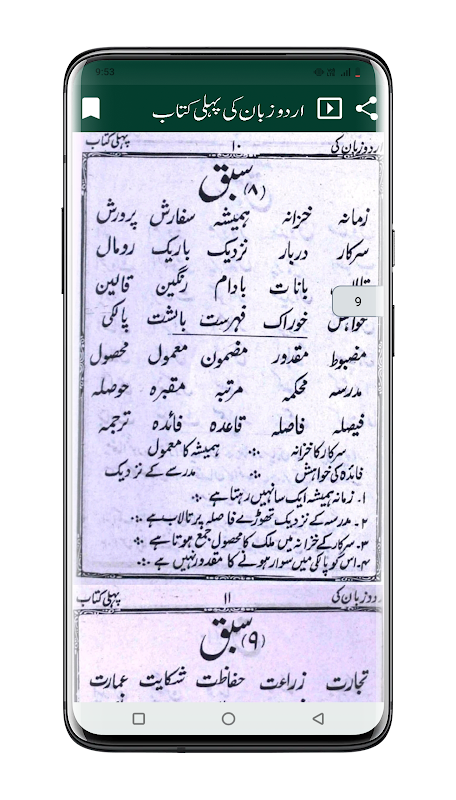 9:53
اردو زبان کی پہلی کتاب
اردو زبان کی ۱۰ پہلی کتاب
سبق (۸)
زمانہ خزانہ ہمیشہ سفارش پرورش
سرکار دربار نزدیک باریک رومال
بانات بادام رنگین قالین
9
خواہش خوراک فہرست بالشت پالکی
مضبوط مقدور مضمون معمول محصول
مدرسہ محکمہ مرتبہ مقبرہ حوصلہ
فیصلہ فاصلہ قاعدہ فائدہ ترجمہ
سرکار کا خزانہ ؞ ہمیشہ کا معمول
فائدہ کی خواہش ؞ مدرسے کے نزدیک
۱۔ زمانہ ہمیشہ ایک سا نہیں رہتا ہے ؞
۲۔ مدرسہ کے نزدیک تھوڑے فاصلہ پر تالاب ہے ؞
۳۔ سرکار کے خزانہ میں ملک کا محصول جمع ہوتا ہے ؞
۴۔ اس کو پالکی میں سوار ہونے کا مقدور نہیں ہے ؞
اردو زبان کی ۱۱ پہلی کتاب
سبق (۹)
تجارت زراعت حفاظت شکایت عمارت